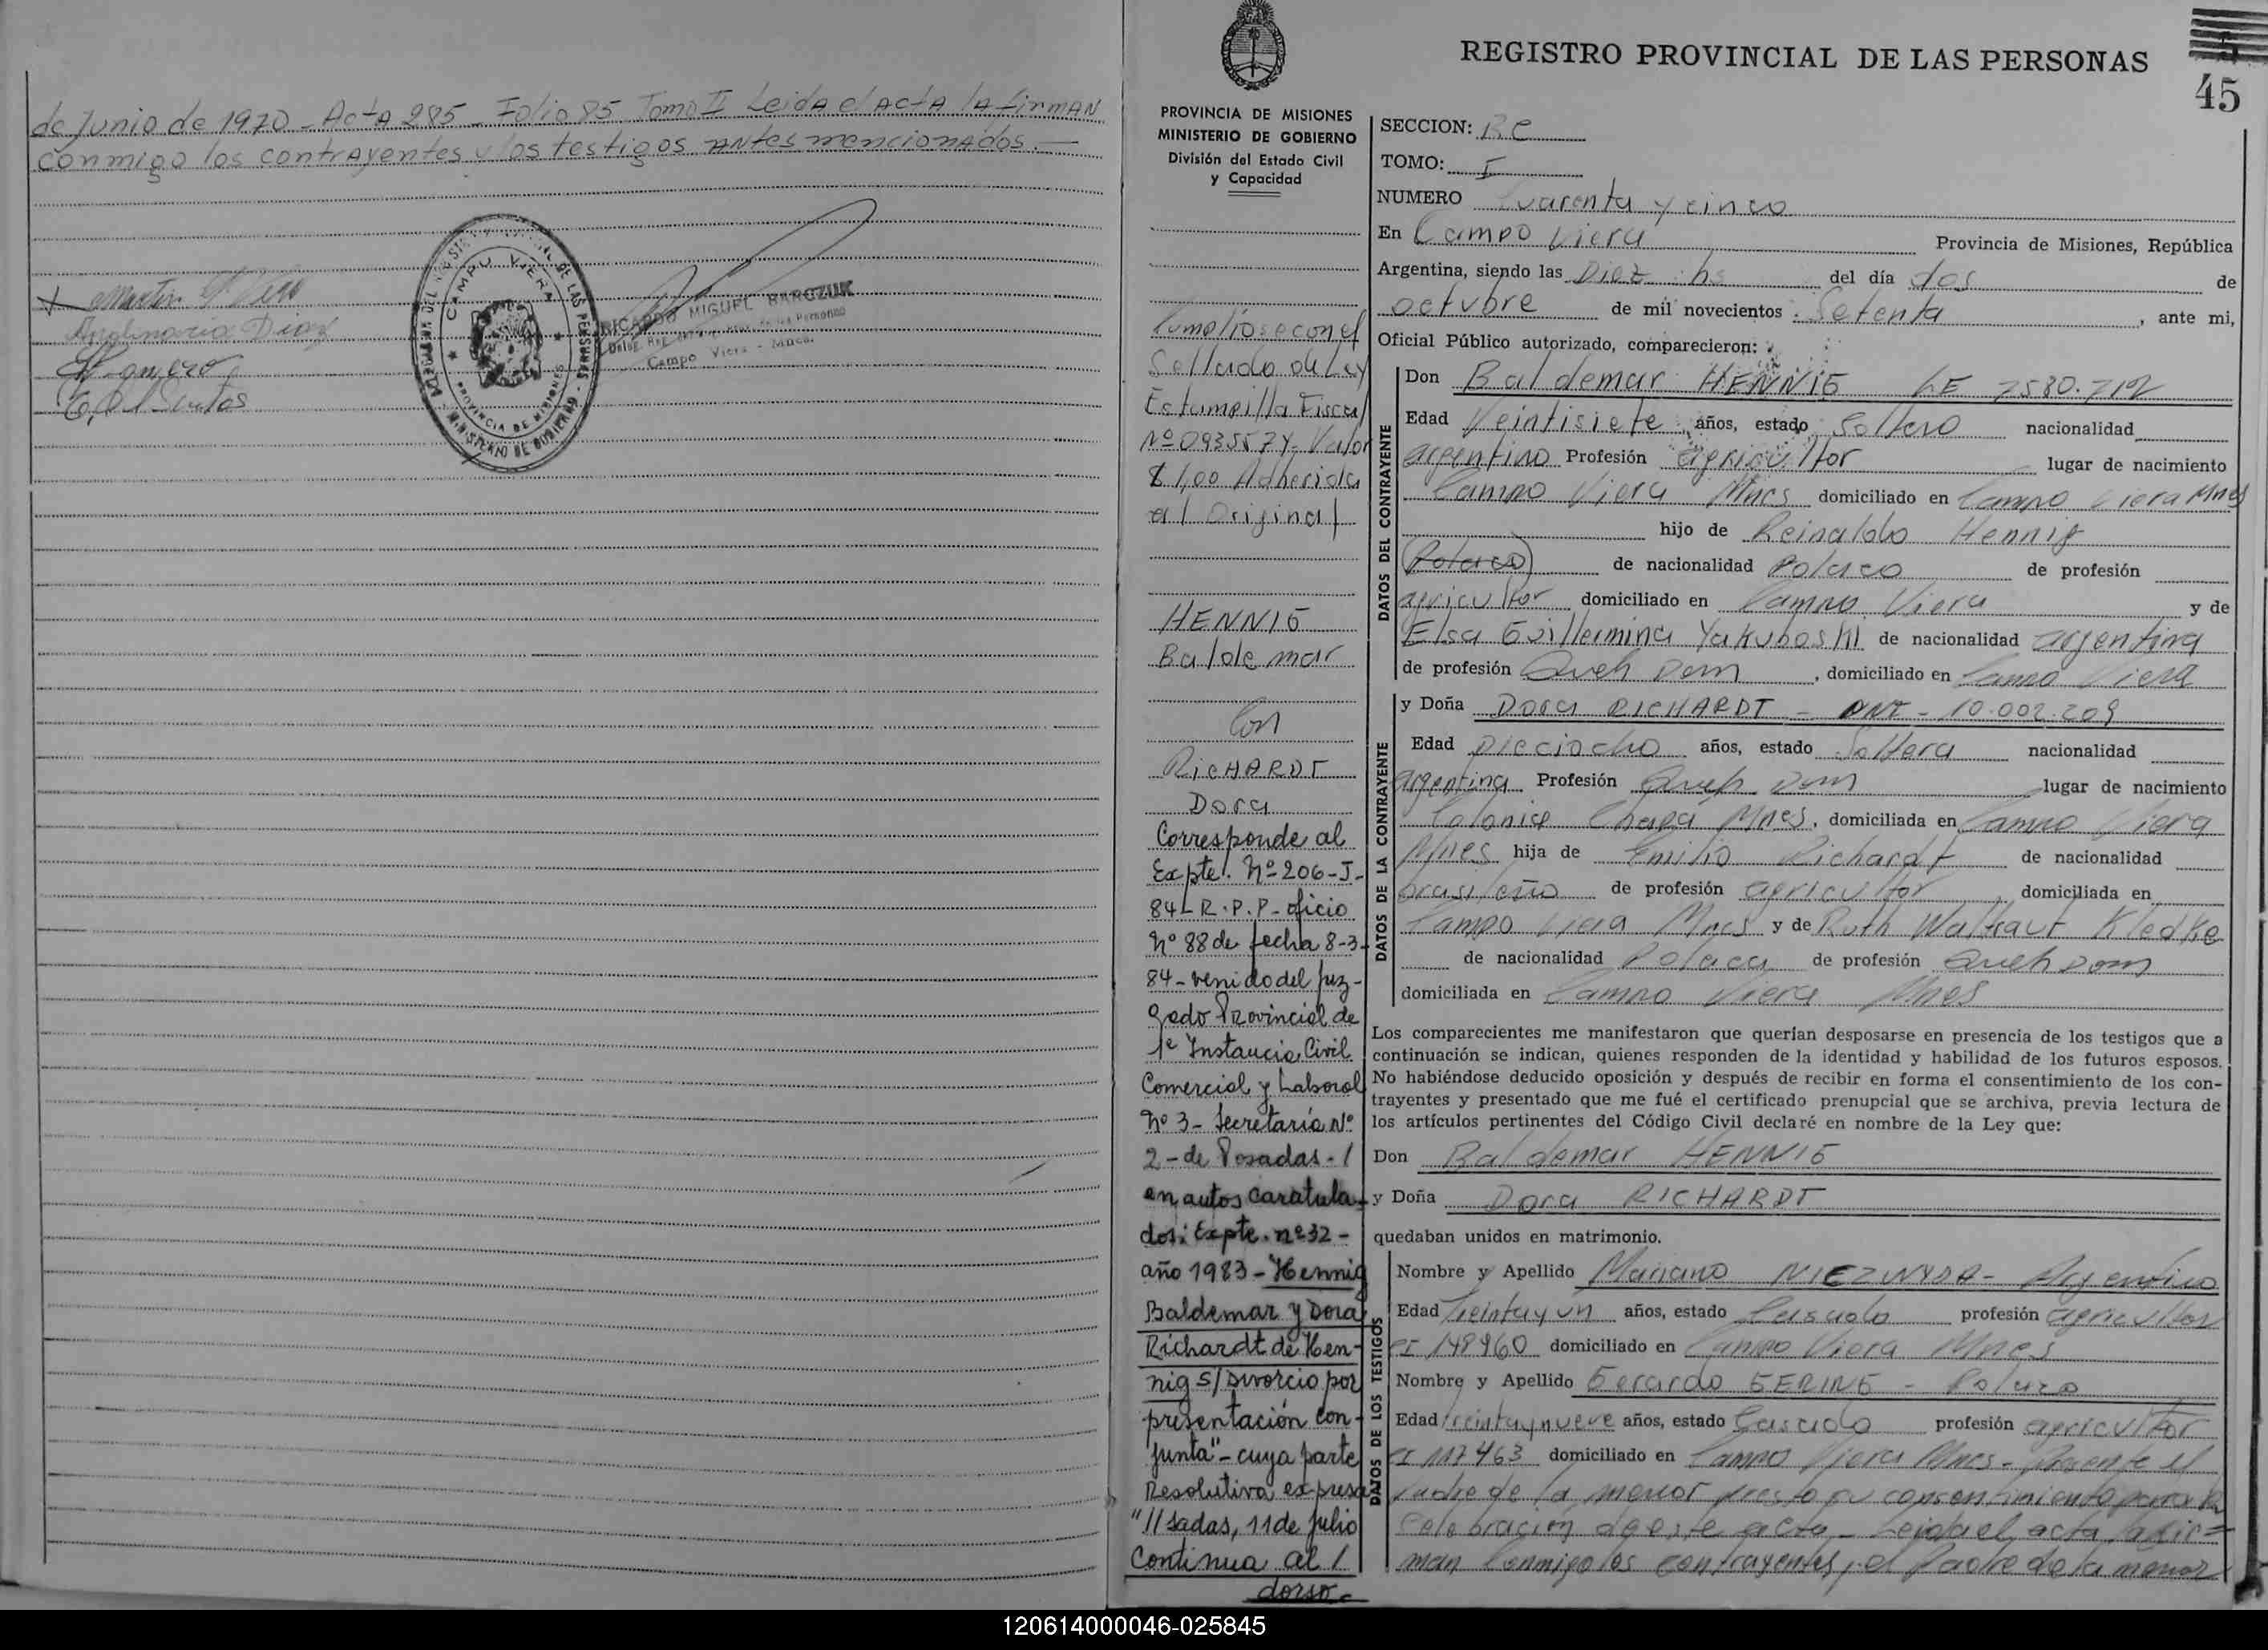 de Junio de 1970 - Acta 285 - Folio 85 Tomo II Leida el Acta la firman
conmigo los contrayentes y los testigos antes mencionados.-
Apolinaria Diaz
CAMPO VIERA
PROVINCIA DE MISIONES
RICARDO MIGUEL BAROZUK
Campo Viera - Mnes.
REGISTRO PROVINCIAL DE LAS PERSONAS
45
PROVINCIA DE MISIONES
MINISTERIO DE GOBIERNO
División del Estado Civil
y Capacidad
Cumplióse con el
Sellado de Ley
Estampilla Fiscal
Nº 0935574- Valor
$ 1,00 Adherida
al Original
HENNIG
Baldemar
Con
RicHARDT
Dora
Corresponde al
Expte. Nº 206-J-
84- R.P.P- oficio
Nº 88 de fecha 8-3-
84- venido del Juz-
gado Provincial de
1ª Instancia Civil
Comercial y Laboral
Nº 3- Secretaría Nº
2- de Posadas- /
en autos caratula-
dos: Expte. nº 32-
año 1983- Hennig
Baldemar y Dora
Richardt de Hen-
nig s/ Divorcio por
presentación con-
junta"- cuya parte
Resolutiva expresa
"//sadas, 11 de julio
Continua al /
dorso-
SECCION: Bc
TOMO: I
NUMERO Cuarenta y cinco
En Campo Viera Provincia de Misiones, República
Argentina, siendo las Diez hs del día dos de
octubre de mil novecientos Setenta, ante mi,
Oficial Público autorizado, comparecieron:
DATOS DEL CONTRAYENTE
Don Baldemar HENNIG LE 7580.712
Edad Veintisiete años, estado Soltero nacionalidad
argentino Profesión agricultor lugar de nacimiento
Campo Viera Mnes domiciliado en Campo Viera Mnes
hijo de Reinaldo Hennig
(Polaco) de nacionalidad Polaco de profesión
agricultor domiciliado en Campo Viera y de
Elsa Guillermina Yakuboski de nacionalidad argentina
de profesión Queh Dom, domiciliado en Campo Viera
DATOS DE LA CONTRAYENTE
y Doña Dora RICHARDT - DNI - 10.002.209
Edad Dieciocho años, estado Soltera nacionalidad
argentina Profesión Queh Dom lugar de nacimiento
Colonia Chapá Mnes, domiciliada en Campo Viera
Mnes hija de Emilio Richardt de nacionalidad
brasileño de profesión agricultor domiciliada en
Campo Viera Mnes y de Ruth Waltraut Kledke
de nacionalidad Polaca de profesión Queh Dom
domiciliada en Campo Viera Mnes
Los comparecientes me manifestaron que querían desposarse en presencia de los testigos que a
continuación se indican, quienes responden de la identidad y habilidad de los futuros esposos.
No habiéndose deducido oposición y después de recibir en forma el consentimiento de los con-
trayentes y presentado que me fué el certificado prenupcial que se archiva, previa lectura de
los artículos pertinentes del Código Civil declaré en nombre de la Ley que:
Don Baldemar HENNIG
y Doña Dora RICHARDT
quedaban unidos en matrimonio.
DATOS DE LOS TESTIGOS
Nombre y Apellido Mariano NIEZWYDA- Argentino
Edad Treinta y un años, estado Casado profesión agricultor
CI 148960 domiciliado en Campo Viera Mnes
Nombre y Apellido Gerardo GERING - Polaco
Edad treinta y nueve años, estado Casado profesión agricultor
CI 117463 domiciliado en Campo Viera Mnes- Presente el
padre de la menor presto su consentimiento para la
Celebracion de este acta- Leida el acta la fir=
man Conmigo los contrayentes, el Padre de la menor
120614000046-025845